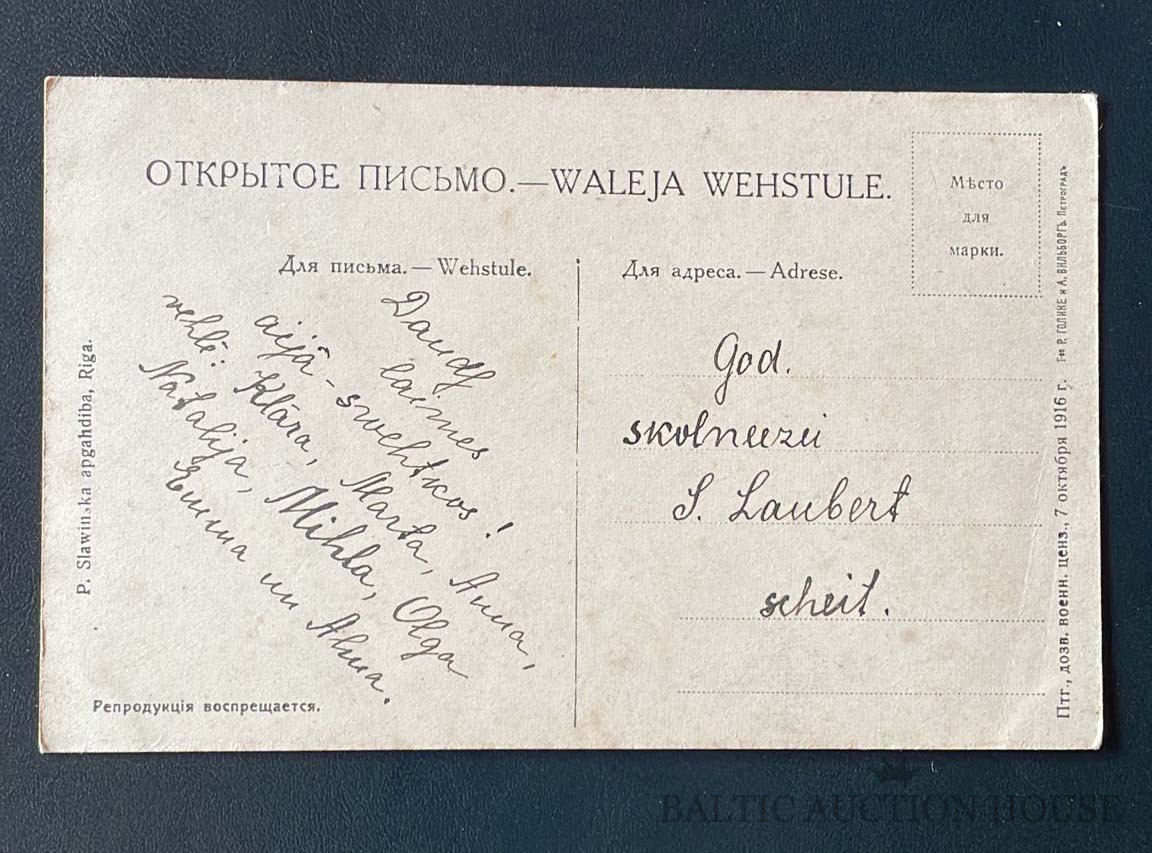 ОТКРЫТОЕ ПИСЬМО.—WALEJA WEHSTULE.
Мѣсто
для
марки.
Для письма.—Wehstule.
Daudz
laimes
aijā-swehtkos!
vehlē: Klāra, Marta, Anna,
Natalija, Mihla, Olga
Emma un Alma.
Для адреса.—Adrese.
God.
skolneezei
S. Laubert
scheit.
P. Slawinska apgahdiba, Riga.
Репродукція воспрещается.
Птг., дозв. военн. ценз., 7 октября 1916 г. Т-во Р. ГОЛИКЕ и А. ВИЛЬБОРГЪ. ПЕТРОГРАДЪ
BALTIC AUCTION HOUSE